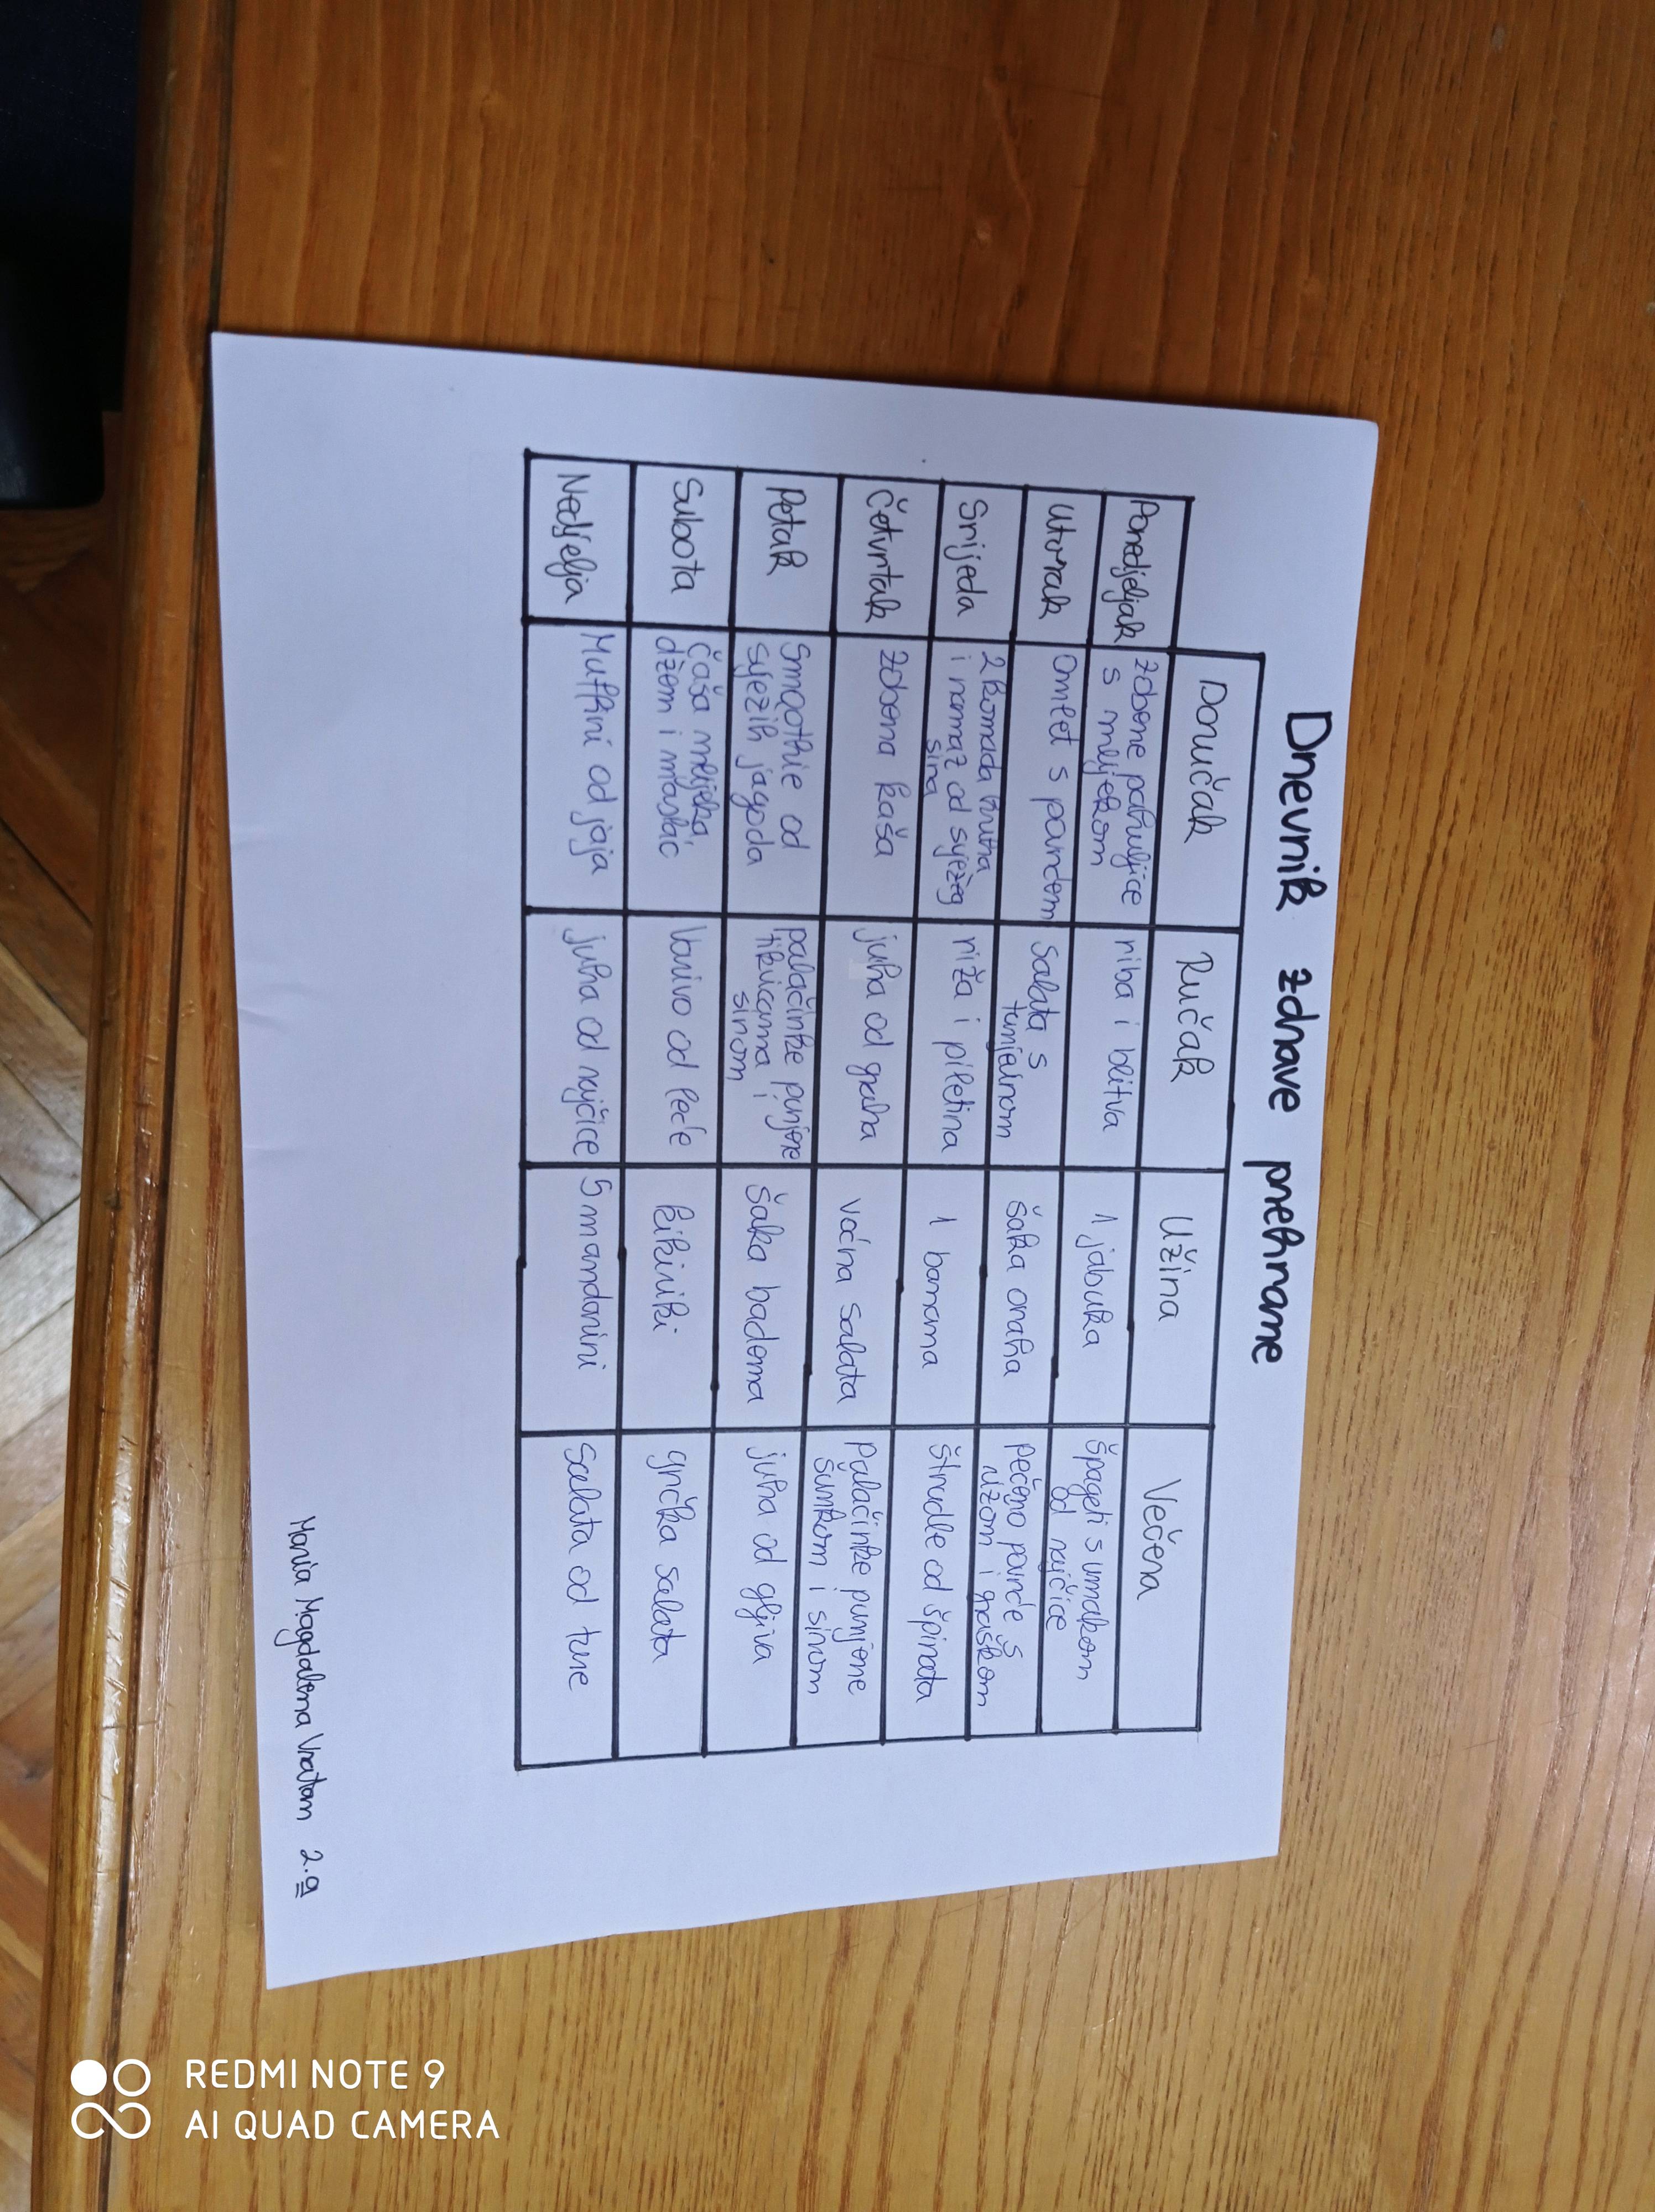 Dnevnik zdrave prehrane
Doručak Ručak Užina Večera
Ponedjeljak zobene pahuljice riba i blitva 1 jabuka špageti s umakom
s mlijekom od rajčice
Utorak omlet s povrćem salata s šaka oraha pečeno povrće s
tunjevinom rižom i graškom
Srijeda 2 komada kruha riža i piletina 1 banana štrudle od špinata
i namaz od svježeg
sira
Četvrtak zobena kaša juha od graha voćna salata palačinke punjene
šunkom i sirom
Petak Smoothie od palačinke punjene šaka badema juha od gljiva
svježih jagoda tikvicama i
sirom
Subota čaša mlijeka, Varivo od leće kikiriki grčka salata
džem i maslac
Nedjelja Muffini od jaja juha od rajčice 5 mandarini salata od tune
Maria Magdalena 2.a
REDMI NOTE 9
AI QUAD CAMERA